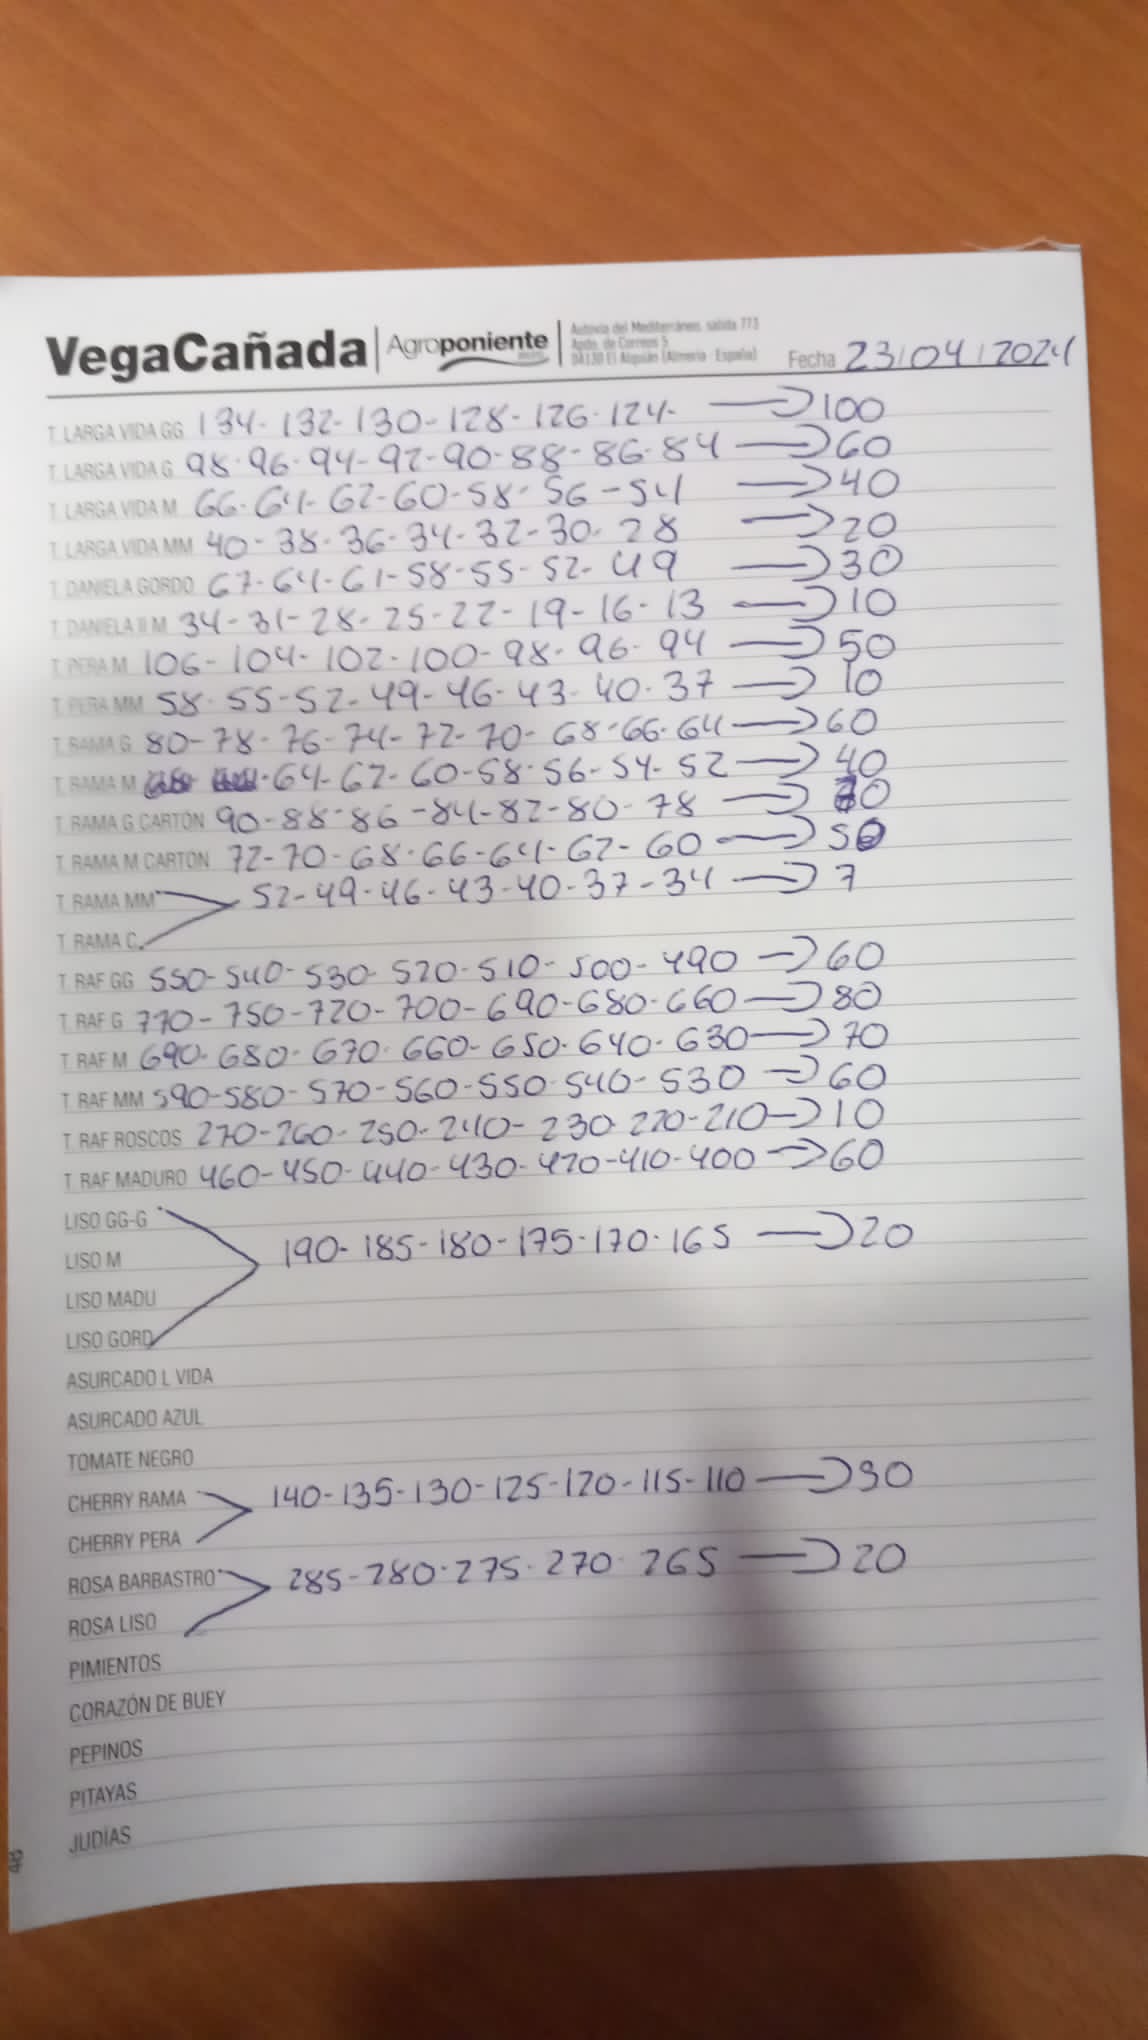 VegaCañada | Agroponiente
Autovía del Mediterráneo, salida 773
Apdo. de Correos 5
04130 El Alquián (Almería - España)
Fecha 23/04/2024
T. LARGA VIDA GG 134-132-130-128-126-124- → 100
T. LARGA VIDA G 98-96-94-92-90-88-86-84 → 60
T. LARGA VIDA M 66-64-62-60-58-56-54 → 40
T. LARGA VIDA MM 40-38-36-34-32-30-28 → 20
T. DANIELA GORDO 67-64-61-58-55-52-49 → 30
T. DANIELA II M 34-31-28-25-22-19-16-13 → 10
T. PERA M 106-104-102-100-98-96-94 → 50
T. PERA MM 58-55-52-49-46-43-40-37 → 10
T. RAMA G 80-78-76-74-72-70-68-66-64 → 60
T. RAMA M -64-62-60-58-56-54-52 → 40
T. RAMA G CARTÓN 90-88-86-84-82-80-78 →
T. RAMA M CARTÓN 72-70-68-66-64-62-60 → 50
T. RAMA MM 52-49-46-43-40-37-34 → 7
T. RAMA C.
T. RAF GG 550-540-530-520-510-500-490 → 60
T. RAF G 770-750-720-700-690-680-660 → 80
T. RAF M 690-680-670-660-650-640-630 → 70
T. RAF MM 590-580-570-560-550-540-530 → 60
T. RAF ROSCOS 270-260-250-240-230-220-210 → 10
T. RAF MADURO 460-450-440-430-420-410-400 → 60
LISO GG-G
LISO M 190-185-180-175-170-165 → 20
LISO MADU
LISO GORD
ASURCADO L VIDA
ASURCADO AZUL
TOMATE NEGRO
CHERRY RAMA 140-135-130-125-120-115-110 → 30
CHERRY PERA
ROSA BARBASTRO 285-280-275-270-265 → 20
ROSA LISO
PIMIENTOS
CORAZÓN DE BUEY
PEPINOS
PITAYAS
JUDÍAS